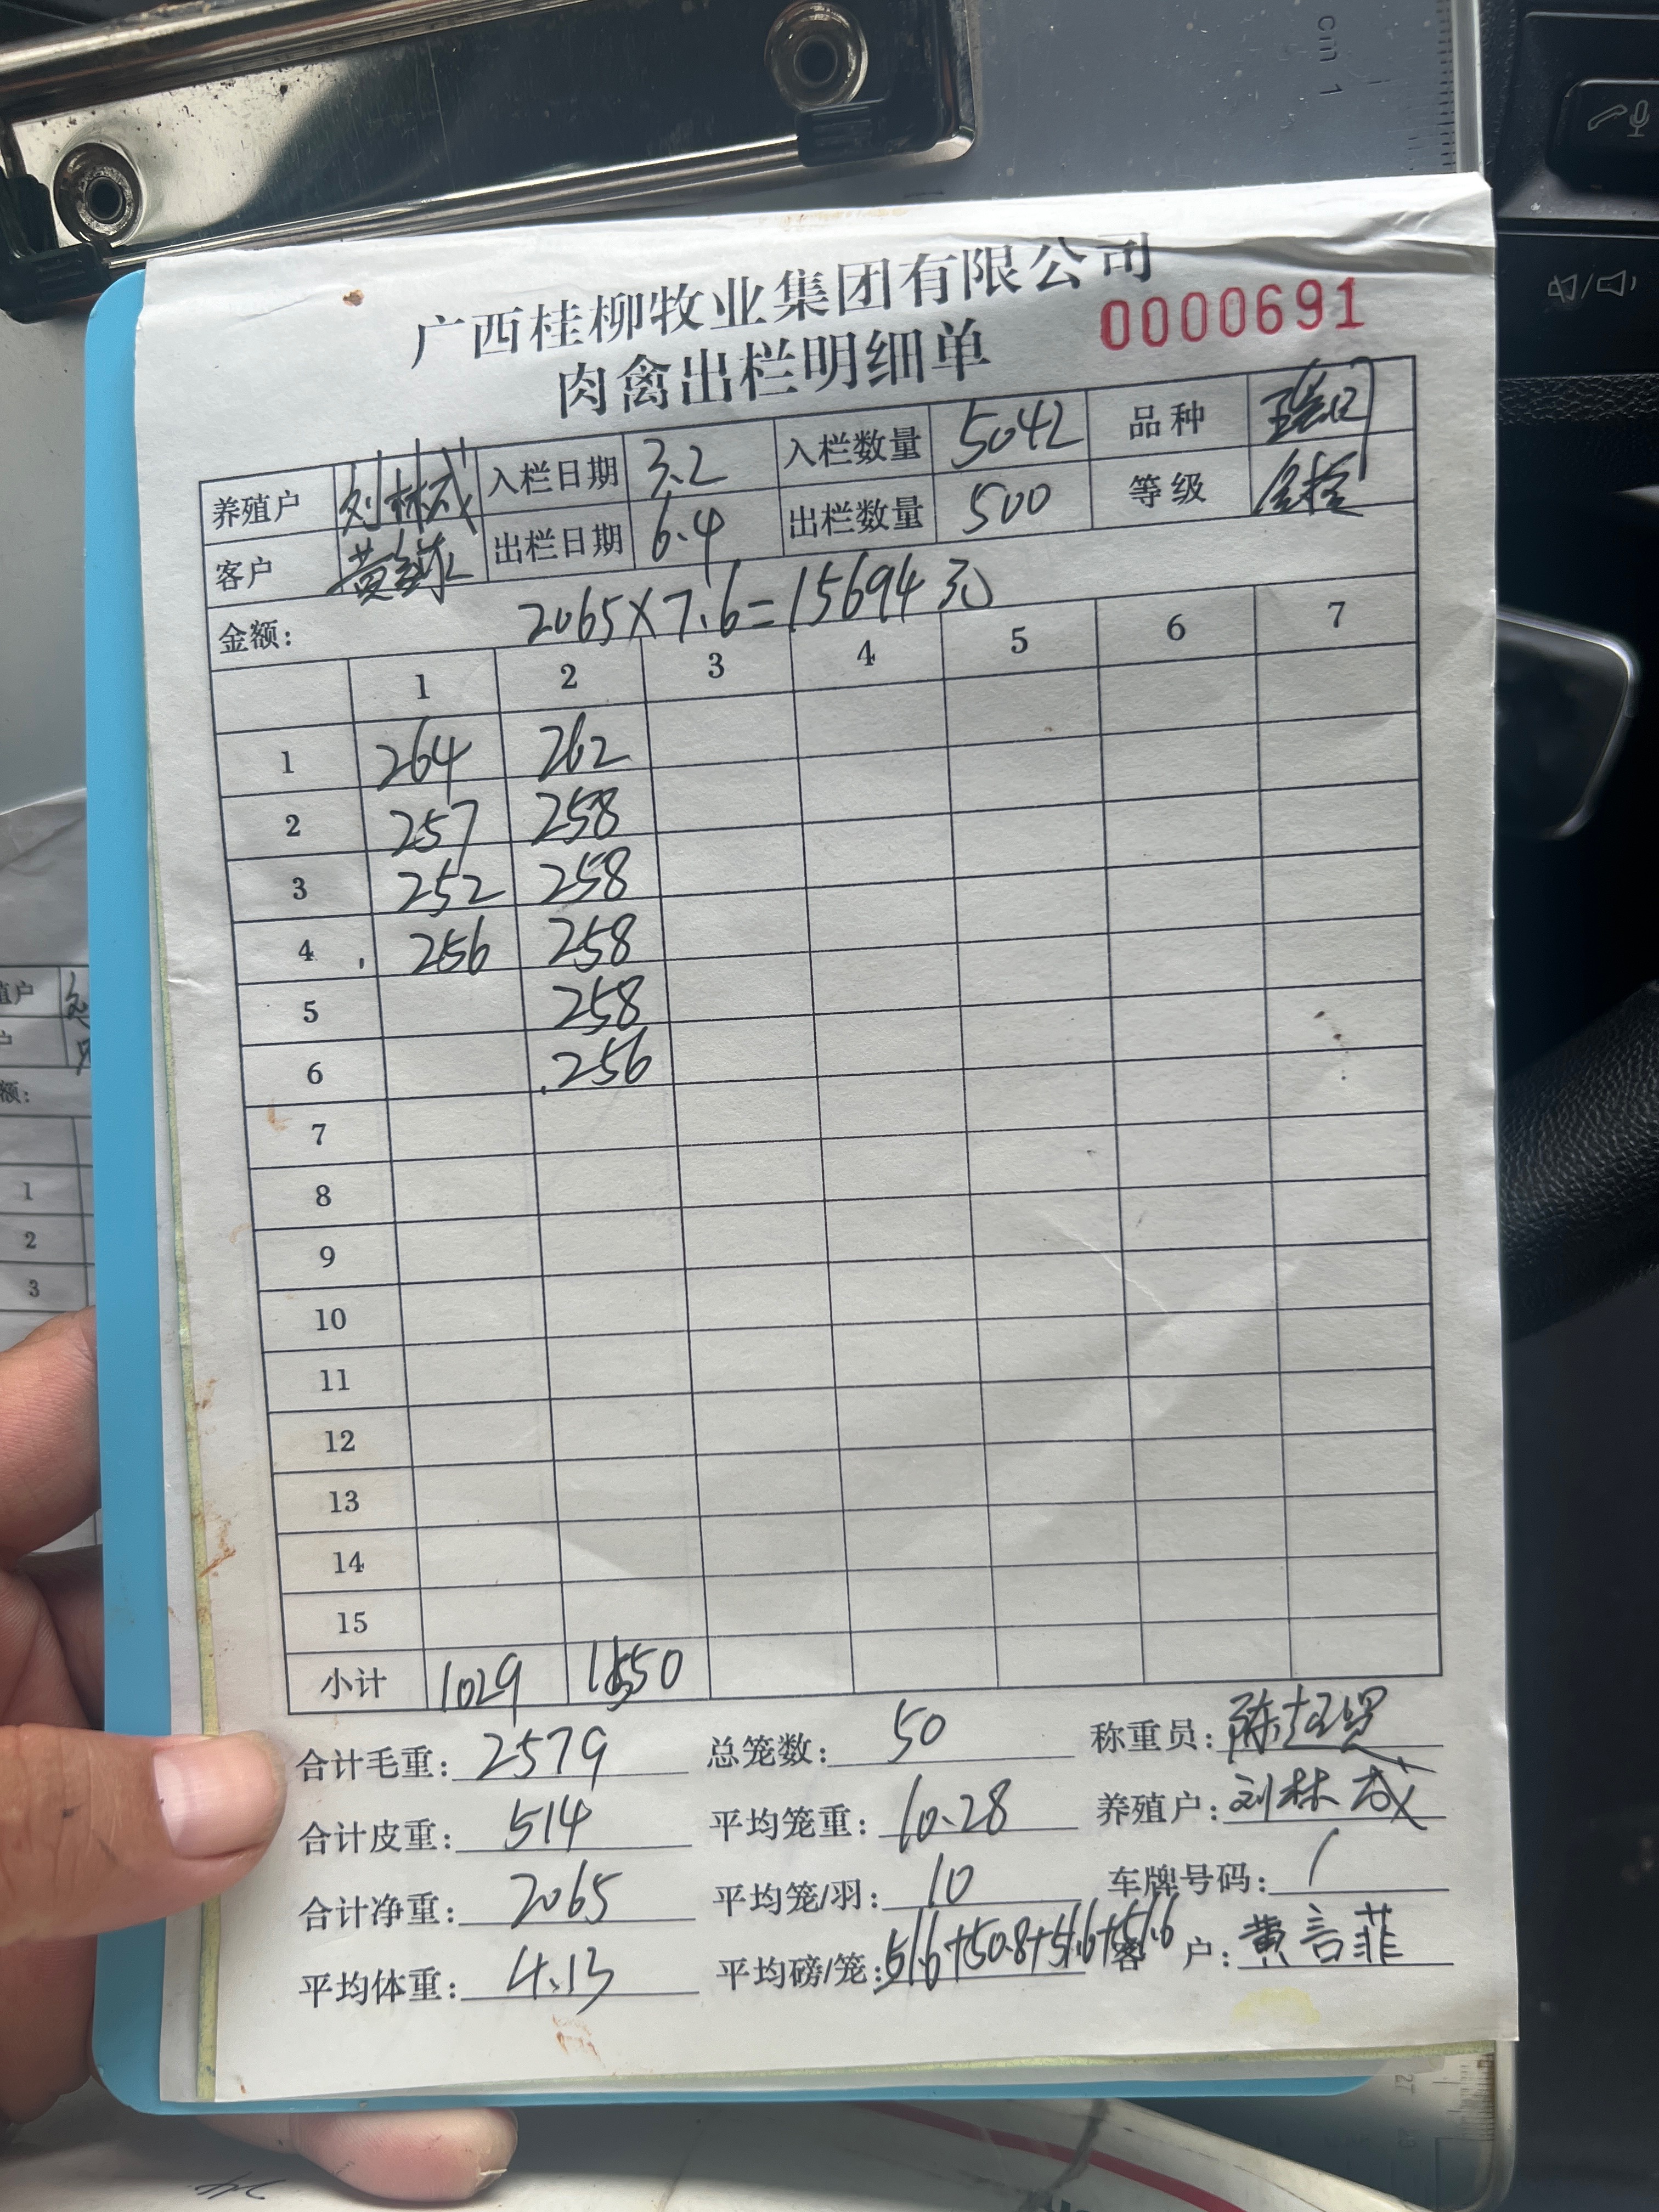 cm 1
广西桂柳牧业集团有限公司
0000691
肉禽出栏明细单
养殖户 刘林成 入栏日期 3.2 入栏数量 5042 品种
客户 出栏日期 6.4 出栏数量 500 等级
金额: 2065×7.6=15694元
1 2 3 4 5 6 7
1 264 262
2 257 258
3 252 258
4 256 258
5 258
6 256
7
8
9
10
11
12
13
14
15
小计 1029 1550
合计毛重: 2579 总笼数: 50 称重员:
合计皮重: 514 平均笼重: 10.28 养殖户: 刘林成
合计净重: 2065 平均笼/羽: 10 车牌号码: /
平均体重: 4.13 平均磅/笼: 51.6+50.8+51.6+51.6 客 户: 黄言菲
殖户
户
额:
1
2
3
27